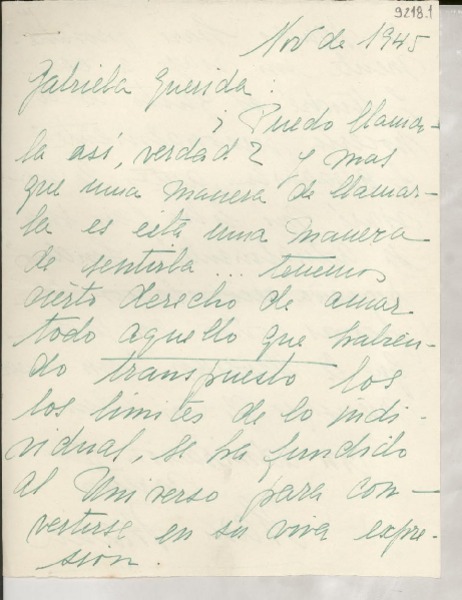 9218.1
Nov de 1945
Gabriela Querida:
¿Puedo llamar-
la así, verdad? y mas
que una manera de llamar-
la es esta una manera
de sentirla... tenemos
cierto derecho de amar
todo aquello que habien-
do transpuesto los
los limites de lo indi-
vidual, se ha fundido
al Universo para con-
vertirse en su viva expre-
sión.